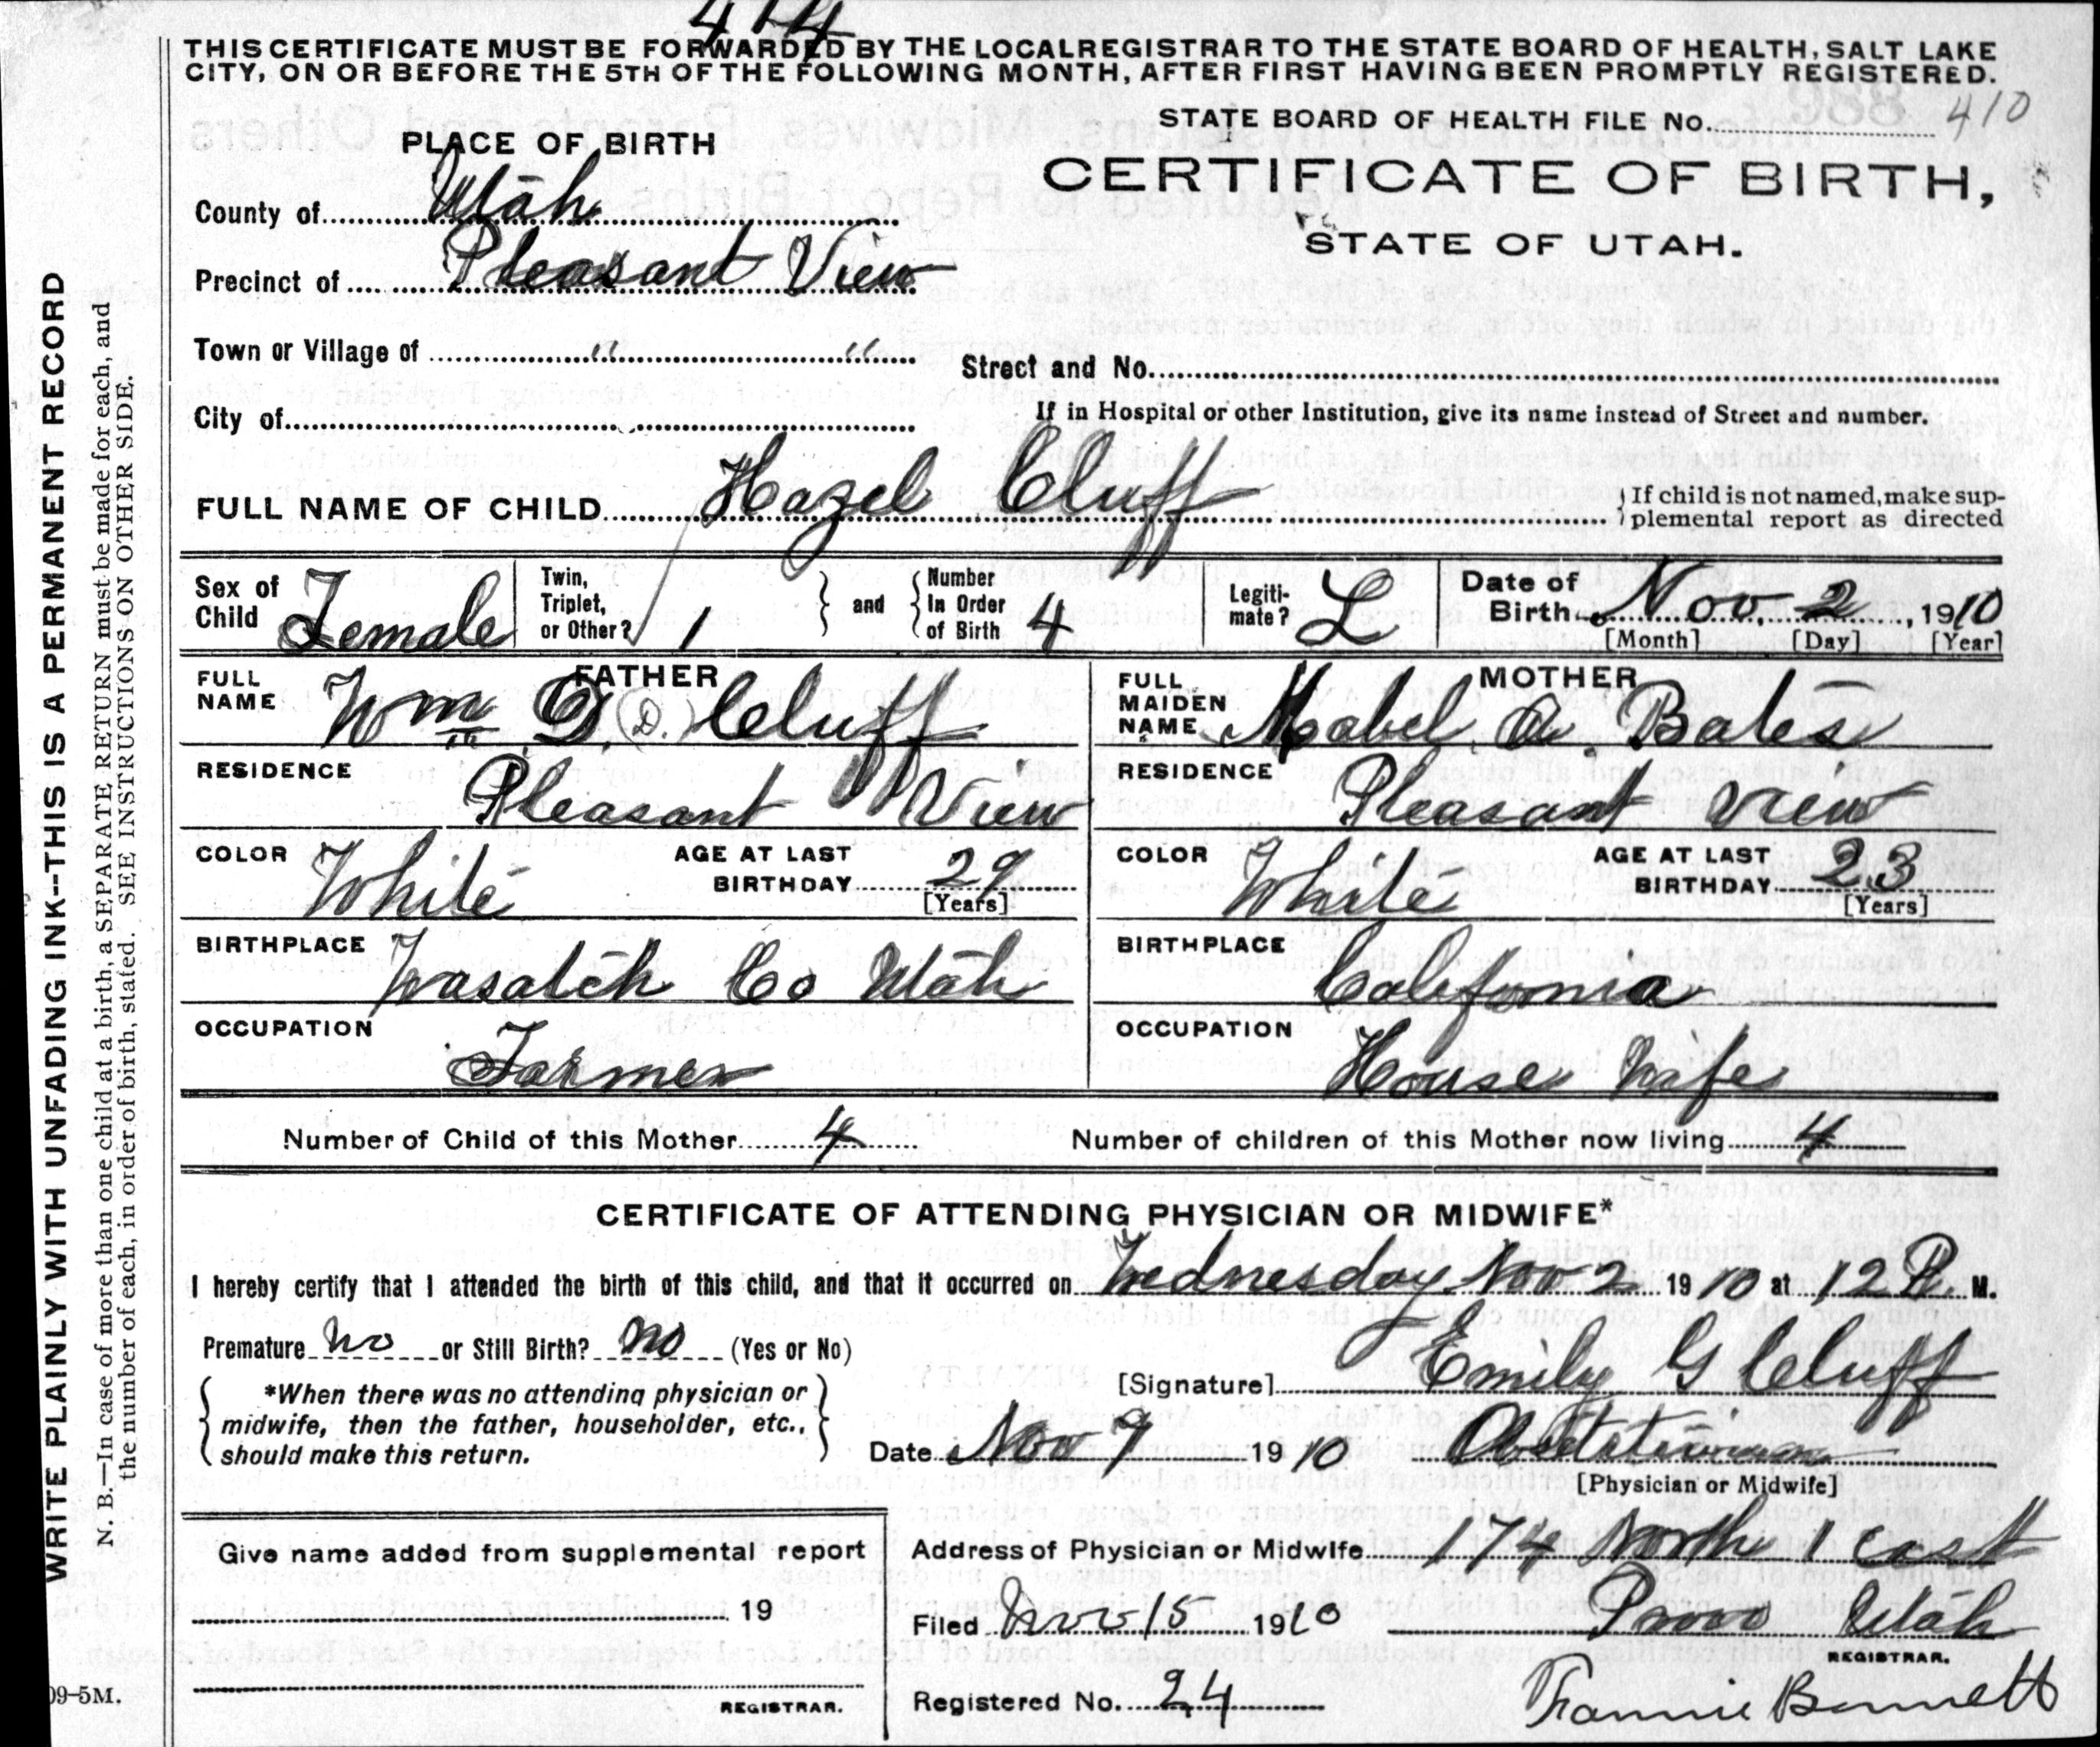 414
THIS CERTIFICATE MUST BE FORWARDED BY THE LOCAL REGISTRAR TO THE STATE BOARD OF HEALTH, SALT LAKE
CITY, ON OR BEFORE THE 5TH OF THE FOLLOWING MONTH, AFTER FIRST HAVING BEEN PROMPTLY REGISTERED.
STATE BOARD OF HEALTH FILE No. 410
PLACE OF BIRTH
CERTIFICATE OF BIRTH,
STATE OF UTAH.
County of Utah
Precinct of Pleasant View
Town or Village of " "
Street and No.
City of
If in Hospital or other Institution, give its name instead of Street and number.
FULL NAME OF CHILD Hazel Cluff
If child is not named, make sup-
plemental report as directed
Sex of Child Female
Twin, Triplet, or Other? 1
and
Number In Order of Birth 4
Legiti-mate? L
Date of Birth Nov. 2, 1910
[Month] [Day] [Year]
FATHER
FULL NAME Wm D. (D.) Cluff
RESIDENCE Pleasant View
COLOR White
AGE AT LAST BIRTHDAY 29
[Years]
BIRTHPLACE Wasatch Co Utah
OCCUPATION Farmer
MOTHER
FULL MAIDEN NAME Mabel A. Bates
RESIDENCE Pleasant View
COLOR White
AGE AT LAST BIRTHDAY 23
[Years]
BIRTHPLACE California
OCCUPATION House Wife
Number of Child of this Mother 4
Number of children of this Mother now living 4
CERTIFICATE OF ATTENDING PHYSICIAN OR MIDWIFE*
I hereby certify that I attended the birth of this child, and that it occurred on Wednesday Nov 2 1910 at 12 P. M.
Premature no or Still Birth? no (Yes or No)
[Signature] Emily G Cluff
*When there was no attending physician or
midwife, then the father, householder, etc.,
should make this return.
Date Nov 9 1910
Obstetrician
[Physician or Midwife]
Give name added from supplemental report
19
REGISTRAR.
Address of Physician or Midwife 174 North 1 East
Provo Utah
Filed Nov 15 1910
REGISTRAR.
Registered No. 24
Fannie Bennett
WRITE PLAINLY WITH UNFADING INK--THIS IS A PERMANENT RECORD
N. B.—In case of more than one child at a birth, a SEPARATE RETURN must be made for each, and
the number of each, in order of birth, stated. SEE INSTRUCTIONS ON OTHER SIDE.
09-5M.